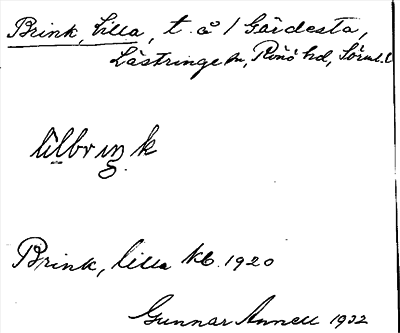 Brink, Lilla, t. å / Gärdesta,
Lästringe sn, Rönö hd, Sörml. l
lilbriŋk
Brink, lilla Kb. 1920
Gunnar Annell 1932